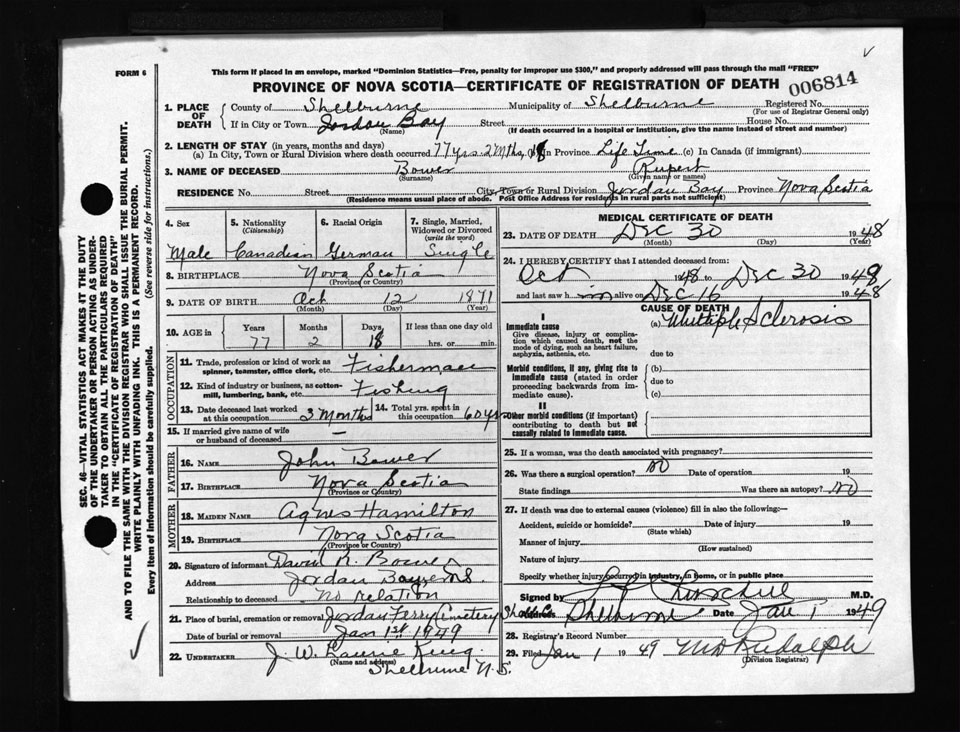 FORM 6
This form if placed in an envelope, marked "Dominion Statistics—Free, penalty for improper use $300," and properly addressed will pass through the mail "FREE"
PROVINCE OF NOVA SCOTIA—CERTIFICATE OF REGISTRATION OF DEATH
006814
1. PLACE OF DEATH { County of Shelburne Municipality of Shelburne Registered No.
(For use of Registrar General only)
If in City or Town Jordan Bay Street House No.
(Name) (If death occurred in a hospital or institution, give the name instead of street and number)
2. LENGTH OF STAY (in years, months and days)
(a) In City, Town or Rural Division where death occurred 77 yrs 2 Mths, 18 In Province Life Time (c) In Canada (if immigrant)
3. NAME OF DECEASED Bower Rupert
(Surname) (Given name or names)
RESIDENCE No. Street City, Town or Rural Division Jordan Bay Province Nova Scotia
(Residence means usual place of abode. Post Office Address for residents in rural parts not sufficient)
4. Sex 5. Nationality (Citizenship) 6. Racial Origin 7. Single, Married, Widowed or Divorced (write the word)
Male Canadian German Single
8. BIRTHPLACE Nova Scotia
(Province or Country)
9. DATE OF BIRTH Oct 12 1871
(Month) (Day) (Year)
10. AGE in Years Months Days If less than one day old
77 2 18 hrs. or min.
OCCUPATION
11. Trade, profession or kind of work as spinner, teamster, office clerk, etc. Fisherman
12. Kind of industry or business, as cotton-mill, lumbering, bank, etc. Fishing
13. Date deceased last worked at this occupation 3 Months 14. Total yrs. spent in this occupation 60 yrs
15. If married give name of wife or husband of deceased —
FATHER
16. NAME John Bower
17. BIRTHPLACE Nova Scotia
(Province or Country)
MOTHER
18. MAIDEN NAME Agnes Hamilton
19. BIRTHPLACE Nova Scotia
(Province or Country)
20. Signature of informant R. Bower
Address Jordan Bay N.S.
Relationship to deceased No relation
21. Place of burial, cremation or removal Jordan Ferry Cemetery Shelb. Co.
Date of burial or removal Jan 1st 1949
22. UNDERTAKER J. W. Laurie King
(Name and address)
Shelburne N.S.
MEDICAL CERTIFICATE OF DEATH
23. DATE OF DEATH Dec 30 1948
(Month) (Day) (Year)
24. I HEREBY CERTIFY that I attended deceased from:
Oct 1948 to Dec 30 1948
and last saw him alive on Dec 16 1948
CAUSE OF DEATH
I
Immediate cause
Give disease, injury or complication which caused death, not the mode of dying, such as heart failure, asphyxia, asthenia, etc.
(a) Multiple Sclerosis
due to
Morbid conditions, if any, giving rise to immediate cause (stated in order proceeding backwards from immediate cause).
(b)
due to
(c)
II
Other morbid conditions (if important) contributing to death but not causally related to immediate cause.
25. If a woman, was the death associated with pregnancy?
26. Was there a surgical operation? no Date of operation 19
State findings Was there an autopsy? no
27. If death was due to external causes (violence) fill in also the following:—
Accident, suicide or homicide? Date of injury 19
(State which)
Manner of injury
(How sustained)
Nature of injury
Specify whether injury occurred in industry, in home, or in public place
Signed by M.D.
Address Shelburne Date Jan 1 1949
28. Registrar's Record Number
29. Filed Jan 1 1949 Rudolph
(Division Registrar)
SEC. 46—VITAL STATISTICS ACT MAKES IT THE DUTY
OF THE UNDERTAKER OR PERSON ACTING AS UNDER-
TAKER TO OBTAIN ALL THE PARTICULARS REQUIRED
IN THE "CERTIFICATE OF REGISTRATION OF DEATH"
AND TO FILE THE SAME WITH THE DIVISION REGISTRAR WHO SHALL ISSUE THE BURIAL PERMIT.
WRITE PLAINLY WITH UNFADING INK. THIS IS A PERMANENT RECORD.
Every item of information should be carefully supplied. (See reverse side for instructions.)